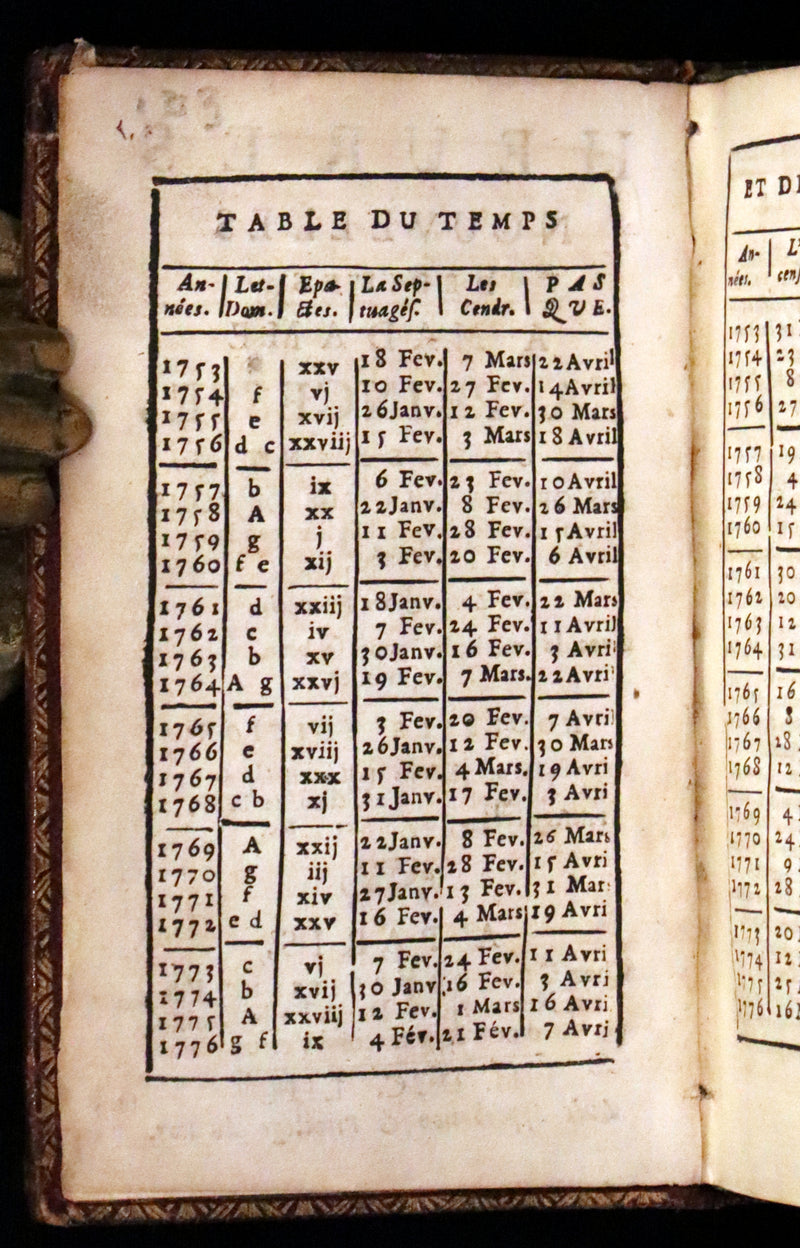 TABLE DU TEMPS
An- Let- Epa- La Sep- Les PAS
nées. Dom. ctes. tuagés. Cendr. QUE.
1753 xxv 18 Fev. 7 Mars 22 Avril
1754 f vj 10 Fev. 27 Fev. 14 Avril
1755 e xvij 26 Janv. 12 Fev. 30 Mars
1756 d c xxviij 15 Fev. 3 Mars 18 Avril
1757 b ix 6 Fev. 23 Fev. 10 Avril
1758 A xx 22 Janv. 8 Fev. 26 Mars
1759 g j 11 Fev. 28 Fev. 15 Avril
1760 f e xij 3 Fev. 20 Fev. 6 Avril
1761 d xxiij 18 Janv. 4 Fev. 22 Mars
1762 c iv 7 Fev. 24 Fev. 11 Avril
1763 b xv 30 Janv. 16 Fev. 3 Avril
1764 A g xxvj 19 Fev. 7 Mars. 22 Avri
1765 f vij 3 Fev. 20 Fev. 7 Avril
1766 e xviij 26 Janv. 12 Fev. 30 Mars
1767 d xxx 15 Fev. 4 Mars. 19 Avri
1768 c b xj 31 Janv. 17 Fev. 3 Avri
1769 A xxij 22 Janv. 8 Fev. 26 Mars
1770 g iij 11 Fev. 28 Fev. 15 Avri
1771 f xiv 27 Janv. 13 Fev. 31 Mar
1772 e d xxv 16 Fev. 4 Mars 19 Avri
1773 c vj 7 Fev. 24 Fev. 11 Avri
1774 b xvij 30 Janv 16 Fev. 3 Avri
1775 A xxviij 12 Fev. 1 Mars 16 Avri
1776 g f ix 4 Fév. 21 Fév. 7 Avri
ET DE
An- L'
nées. cens
1753 31
1754 23
1755 8
1756 27
1757 19
1758 4
1759 24
1760 15
1761 30
1762 20
1763 12
1764 31
1765 16
1766 8
1767 28
1768 12
1769 4
1770 24
1771 9
1772 28
1773 20
1774 12
1775 25
1776 16